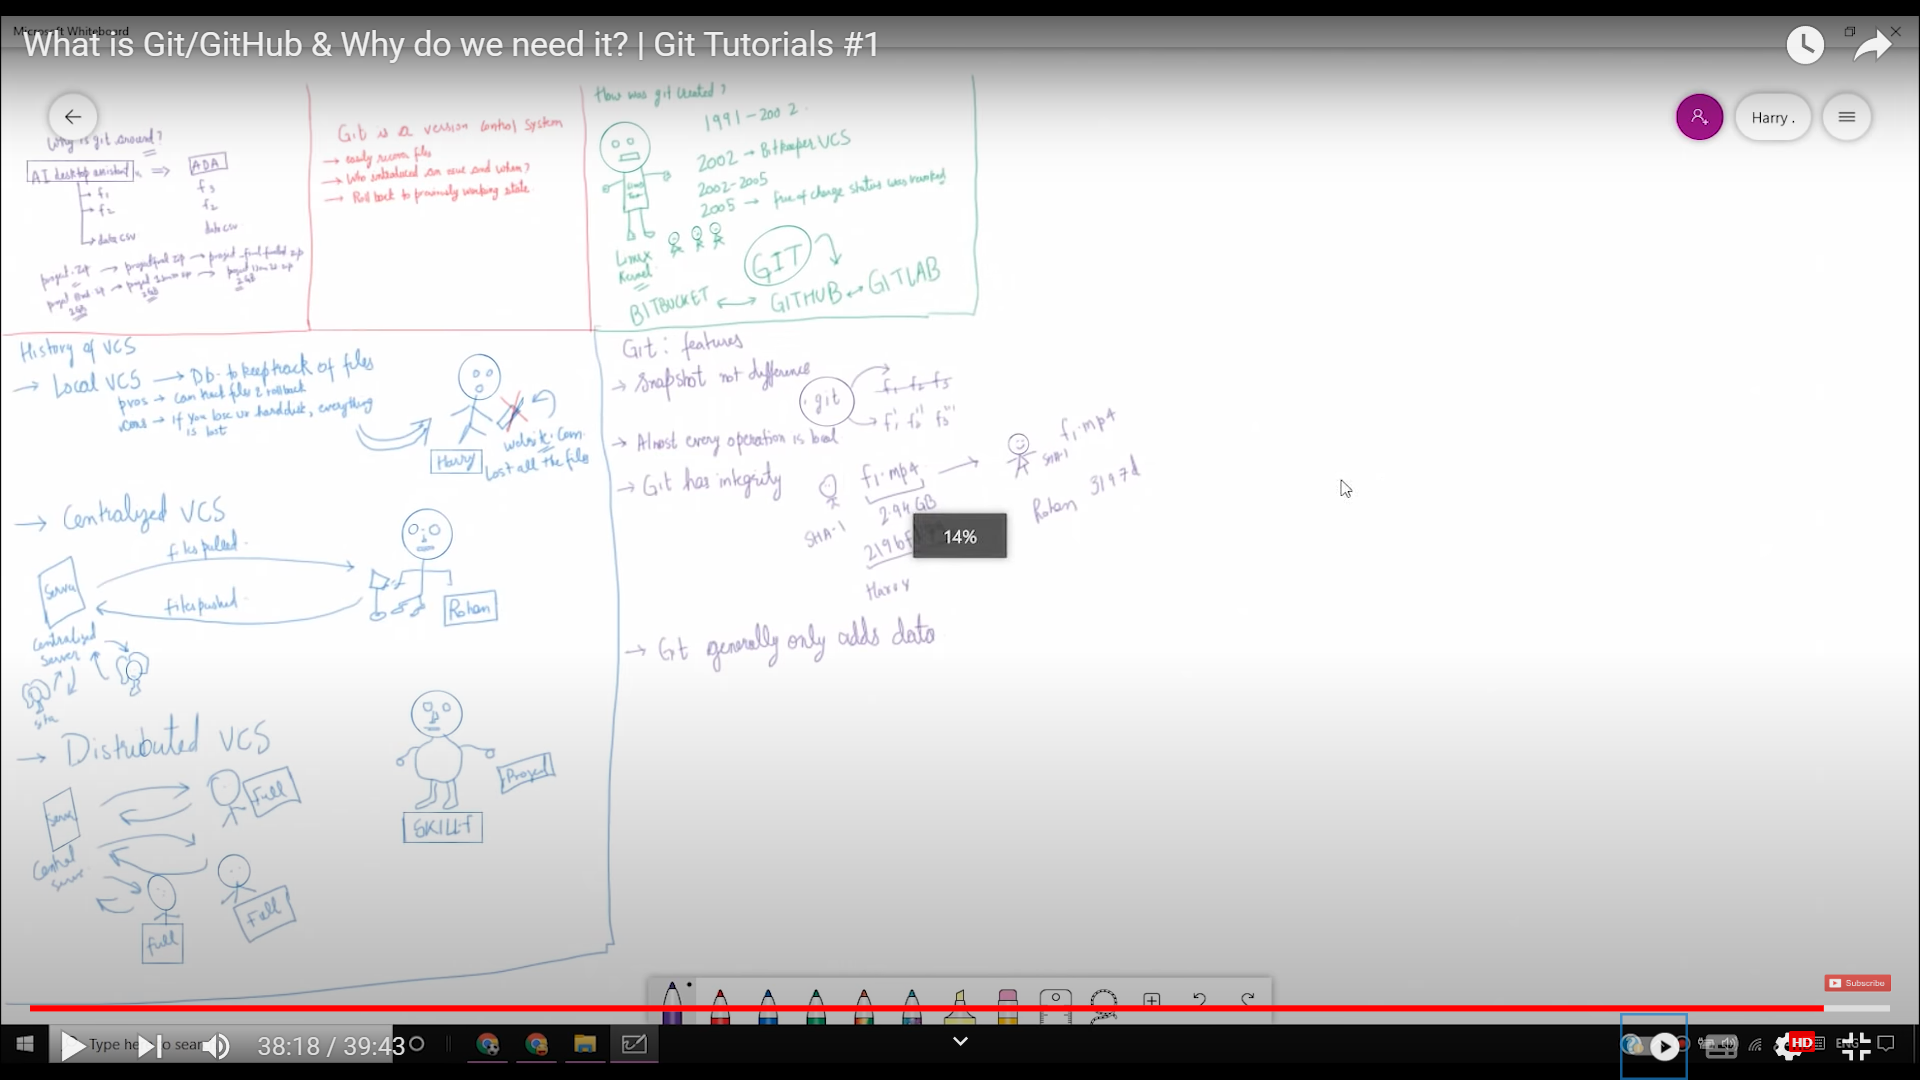 Microsoft Whiteboard
What is Git/GitHub & Why do we need it? | Git Tutorials #1
Harry .
Why is git around?
AI desktop assistant
ADA
f1
f2
data csv
f3
f2
data csv
project.zip
2GB
2GB
2GB
Git is a version control system
→ easily recover files
→ Who introduced an issue and when?
→ Roll back to previously working state
How was git created?
1991-2002
2002 → Bitkeeper VCS
2002-2005
2005 → free of charge status was revoked
Linux
Kernel
GIT
BITBUCKET ↔ GITHUB ↔ GITLAB
History of VCS
→ Local VCS → Db to keep track of files
pros → can track files & rollback
cons → if you lose ur hard disk, everything
is lost
Harry
website.com
Lost all the files
→ Centralized VCS
files pulled
files pushed
Server
Centralized
Server
Rohan
→ Distributed VCS
Server
Central
Server
Full
Full
Full
Project
SKILLF
Git: features
→ Snapshot not difference
git
f1 f2 f3
f1' f2'' f3'''
→ Almost every operation is local
→ Git has integrity
f1.mp4
2.94 GB
SHA-1
Harry
f1.mp4
SHA-1
Rohan 3197d
→ Git generally only adds data
14%
Subscribe
Type here to sear
38:18 / 39:43
HD
ENG